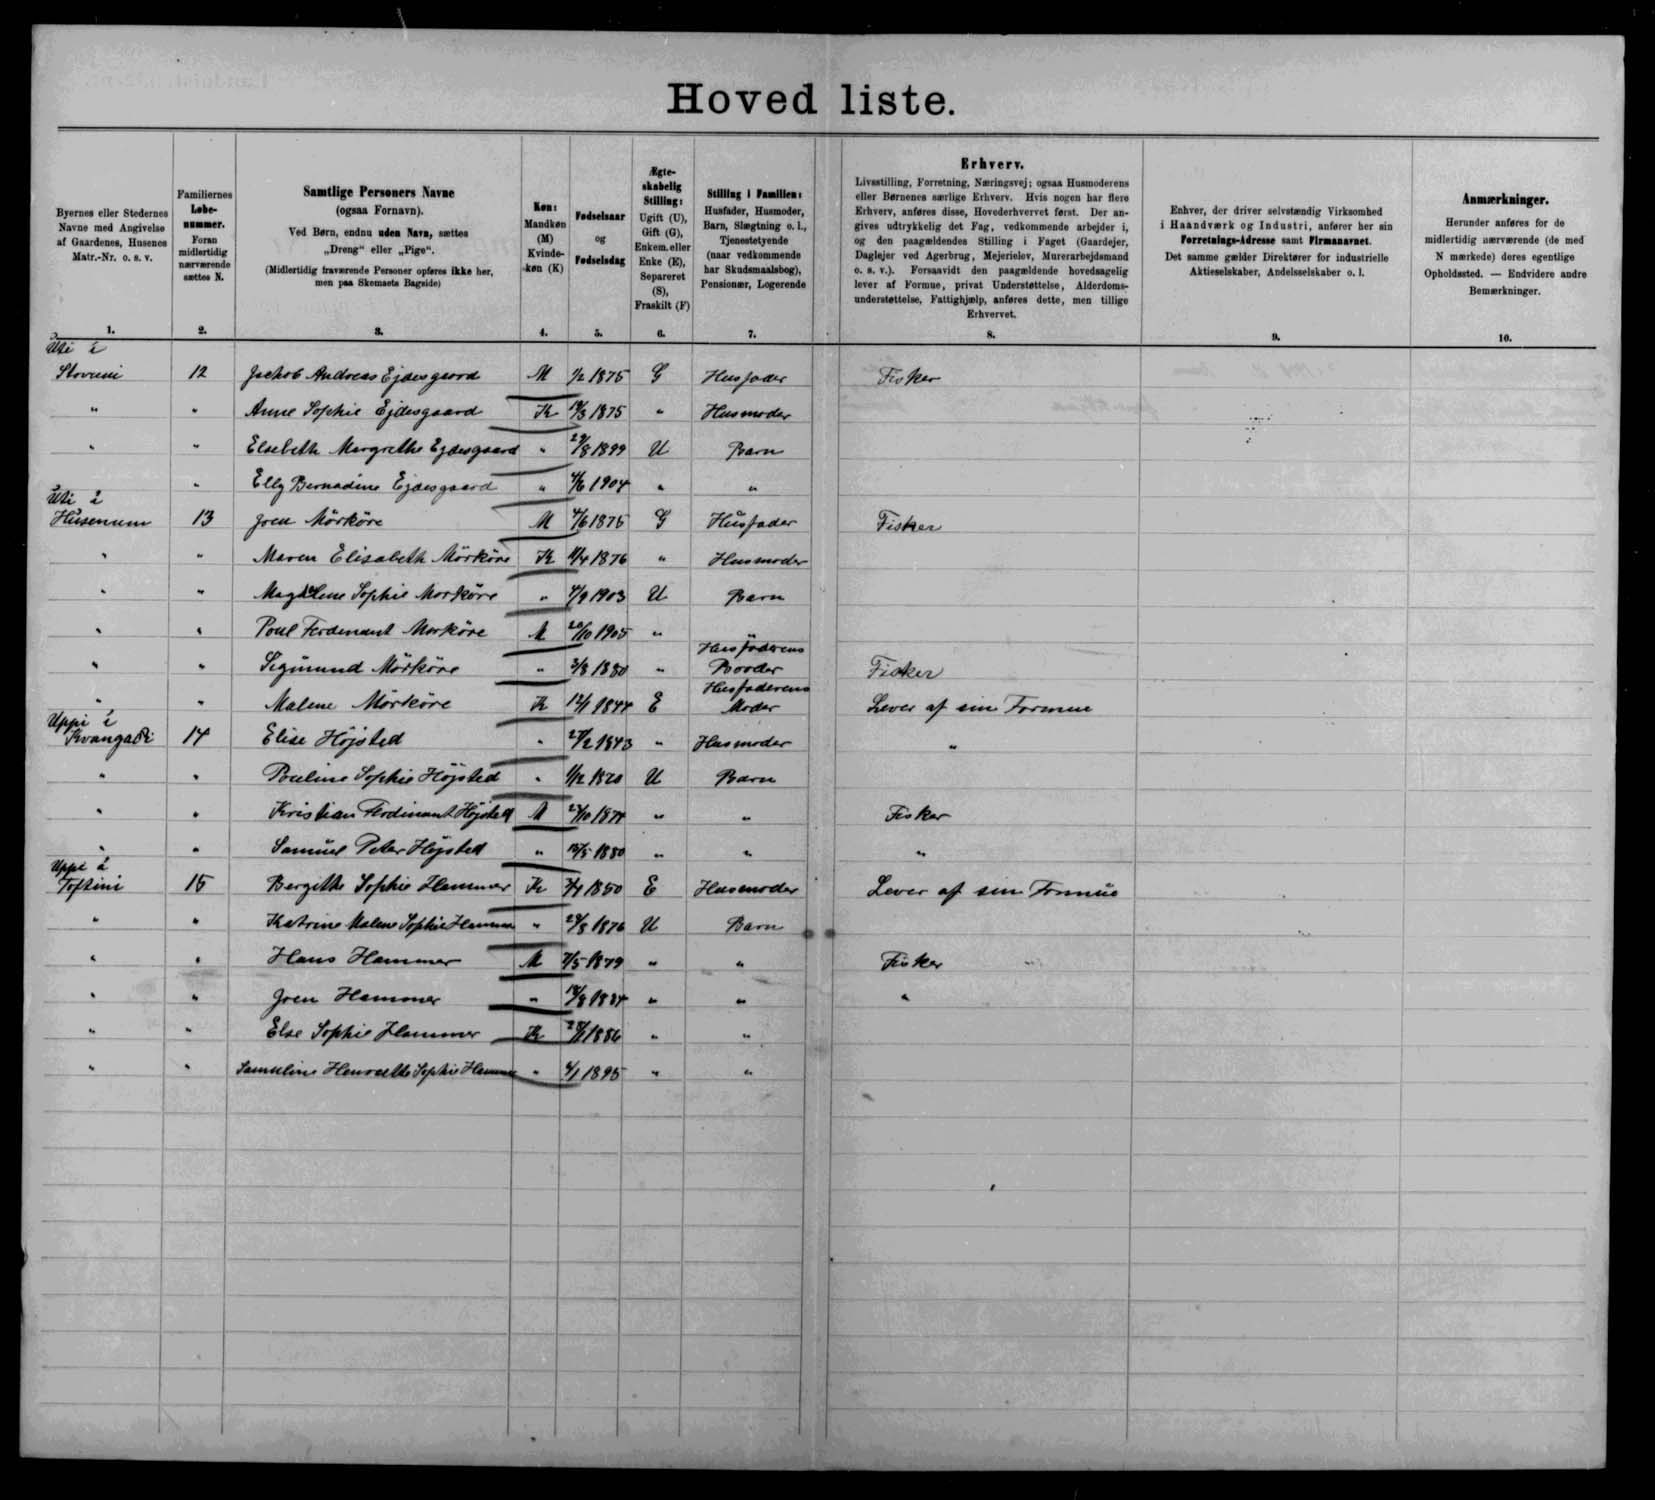 Hoved liste.
Byernes eller Stedernes Navne med Angivelse af Gaardenes, Husenes Matr.-Nr. o. s. v.
Familiernes Løbe-nummer. Foran midlertidig nærværende sættes N.
Samtlige Personers Navne
(ogsaa Fornavn).
Ved Børn, endnu uden Navn, sættes
„Dreng" eller „Pige".
(Midlertidig fraværende Personer opføres ikke her,
men paa Skemaets Bagside)
Køn: Mandkøn (M) Kvinde-køn (K)
Fødselsaar og Fødselsdag
Ægte-skabelig Stilling: Ugift (U), Gift (G), Enkem. eller Enke (E), Separeret (S), Fraskilt (F)
Stilling i Familien: Husfader, Husmoder, Barn, Slægtning o. l., Tjenestetyende (naar vedkommende har Skudsmaalsbog), Pensionær, Logerende
Erhverv.
Livsstilling, Forretning, Næringsvej; ogsaa Husmoderens
eller Børnenes særlige Erhverv. Hvis nogen har flere
Erhverv, anføres disse, Hovederhvervet først. Der an-
gives udtrykkelig det Fag, vedkommende arbejder i,
og den paagældendes Stilling i Faget (Gaardejer,
Daglejer ved Agerbrug, Mejerielev, Murerarbejdsmand
o. s. v.). Forsaavidt den paagældende hovedsagelig
lever af Formue, privat Understøttelse, Alderdoms-
understøttelse, Fattighjælp, anføres dette, men tillige
Erhvervet.
Enhver, der driver selvstændig Virksomhed
i Haandværk og Industri, anfører her sin
Forretnings-Adresse samt Firmanavnet.
Det samme gælder Direktører for industrielle
Aktieselskaber, Andelsselskaber o. l.
Anmærkninger.
Herunder anføres for de
midlertidig nærværende (de med
N mærkede) deres egentlige
Opholdssted. — Endvidere andre
Bemærkninger.
1. 2. 3. 4. 5. 6. 7. 8. 9. 10.
Uti i
Stovuni 12 Jachob Andreas Ejdesgaard M 1/2 1875 G Husfader Fisker
" " Anne Sophie Ejdesgaard K 1875 " Husmoder
" " Elsebeth Margrethe Ejdesgaard " 29/8 1899 U Barn
" Elly Bernadine Ejdesgaard " 4/6 1904 " "
Uti i
Húsenum 13 Joen Mörköre M 4/6 1875 G Husfader Fisker
" " Maren Elisabeth Mörköre K 1876 " Husmoder
" " Magdalene Sophie Morköre " 4/9 1903 U Barn
" " Poul Ferdinant Morköre M 20/10 1905 " "
" " Sigmund Mörköre " 3/8 1880 " Husfaderens Broder Fisker
" " Malene Mörköre K 12/1 1844 E Husfaderens Moder Lever af sin Formue
Uppi i
Kvangardi 14 Elise Højsted " 27/2 1843 " Husmoder "
" " Pouline Sophie Højsted " 1/12 1870 U Barn
" " Kristian Ferdinant Højsted M 1874 " " Fisker
" " Samuel Peter Højsted " 1880 " " "
Uppi i
Toftini 15 Bergitte Sophie Hammer K 1850 E Husmoder Lever af sin Formue
" " Katrine Malene Sophie Hammer " 1876 U Barn
" " Hans Hammer M 7/5 1879 " " Fisker
" " Joen Hammer " 18/8 1884 " " "
" " Else Sophie Hammer K 1886 " "
" " Samueline Henriette Sophie Hammer " 4/1 1895 " "